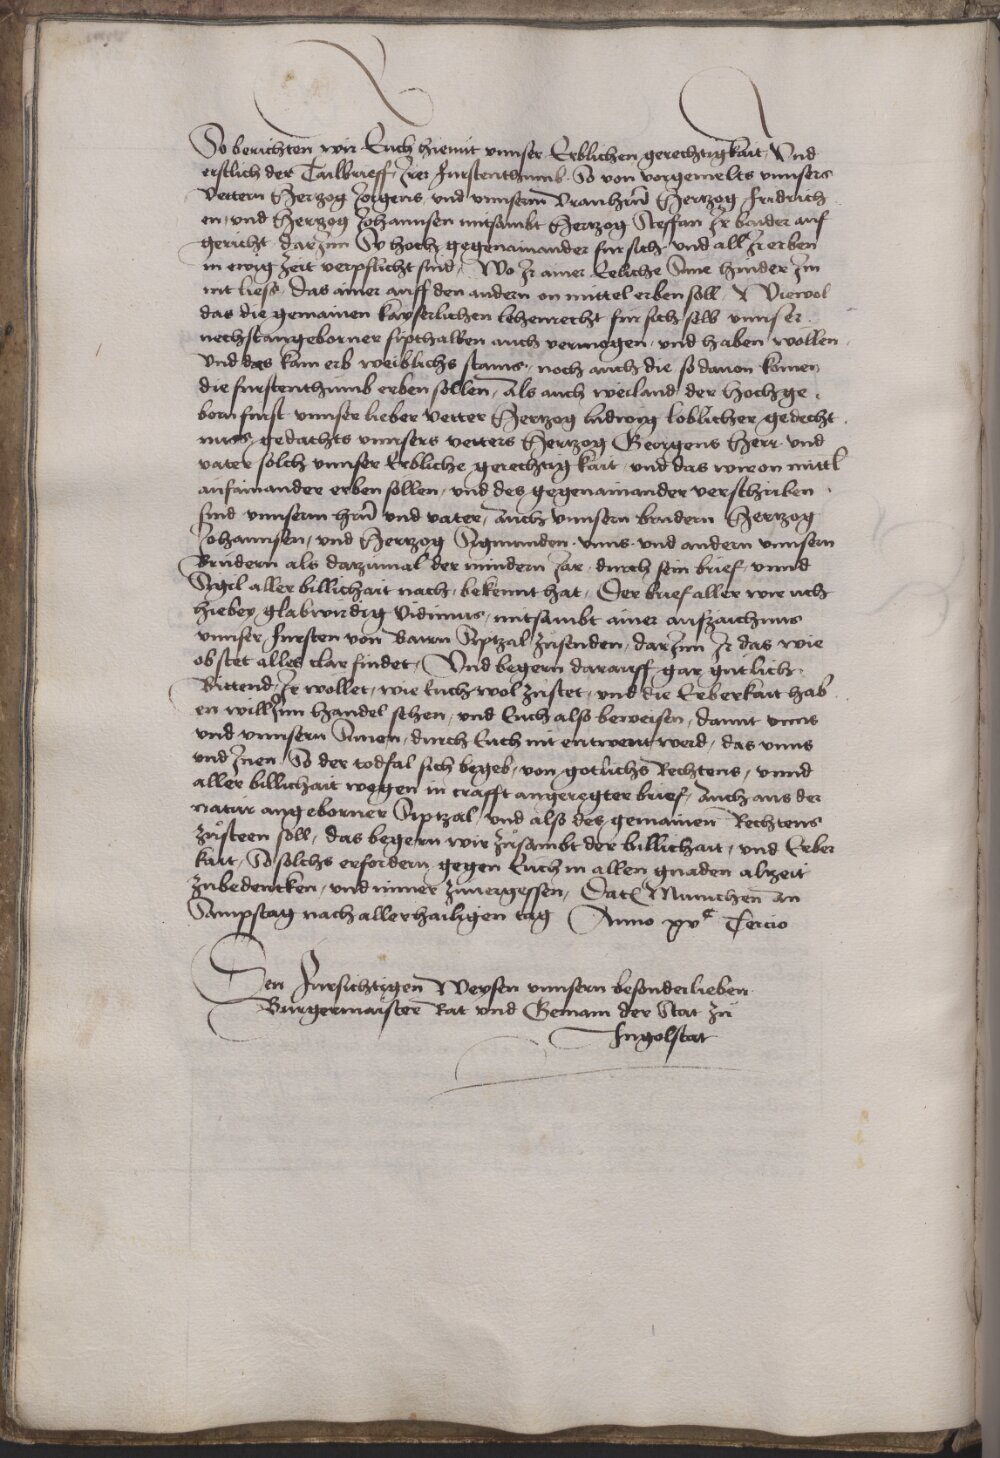 So berichten wir Euch hiemit vnnser Erblichen gerechtigkait, Vnd
erstlich der Tailbrieff, Irer Furstenthumb So von vorgemelts vnnsers
Vettern Hertzog Jorgens, vnd vnnserm Vranhern Hertzog Fridrich
en, vnd Hertzog Johannsen mitsambt Hertzog Steffan Ir bruder auf
gericht, darjnn Sy hoch gegenainander fur sich vnd all Ir erben
in ewig Zeit verpflicht sind, Wo Ir ainer Eeliche Sune hinder Im
nit lies, das ainer auff den andern on mittel erben soll, Wiewol
das die gemainen kayserlichen lehenrecht fur sich selb vnnser
nechstangeborner sipthalben auch vermogen, vnd haben wollen
Vnd das kain erb weiblichs stams, noch auch die so dauon komen
die furstenthumb erben sollen, Als auch weiland der Hochge
born furst vnnser lieber Vetter Hertzog Ludwig loblicher gedecht
nus, gedachts vnnsers vetters Hertzog Georgens Herr vnd
vater solch vnnser Erbliche gerechtigkait, vnd das wir on mittl
aufainander erben sollen, vnd des gegenainander verschriben
sind vnnserm hern vnd vater, Auch vnnsern brudern Hertzog
Johannsen, vnd Hertzog Sigmunden, vnns vnd andern vnnsern
Brudern als dazumal der mindern Jar, durch sein brief, vnnd
Sigil aller billichait nach, bekennt hat, Der brief aller wir uch
hiebey glabwirdig Vidimus, mitsambt ainer aufzaichnus
vnnser, fursten von Bairn Siptzal zusenden, darjnn Ir das wie
ob stet alles clar findet, Vnd begern darauff gar gutlich
Bittend, Ir wollet, wie Euch wol zustet, vnd die Erberkait hab
en will, Inn handel sehen, vnd Euch also beweisen, damit vnns
vnd vnnsern Sunen, durch Euch nit entwent werd, das vnns
vnd Inen, So der todfal sich begeb, von gotlichs Rechtens, vnnd
aller billichait wegen in crafft angeregter brief, Auch aus der
natur angeborner Siptzal, vnd also des gemainen Rechtens
zusteen soll, das begern wir zusambt der billichait, vnd Erber
kait, So solchs erfordern, gegen Euch in allen gnaden alzeit
zubedencken, vnd nimer zuuergessen, Dat Munichen an
Sampstag nach allerhailigen tag Anno xvc Tercio
Den Fursichtigen Weysen vnnsern besonder lieben
Burgermaister Rat vnd Gemain der Stat zu
Ingolstat